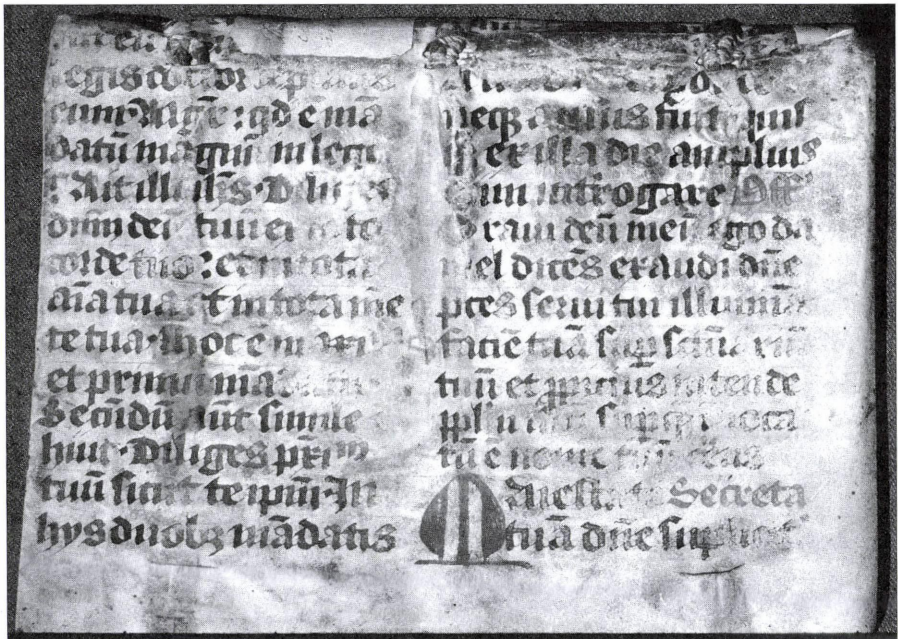 legis doctor
eum· Magr̄e: qd ē mā
datū magnū in lege
Ait illi ih̄s· Diliges
dn̄m deū tuū ex toto
corde tuo: et in tota
aīa tua et in tota mē
te tua· Hoc ē
et primū mādatū
Secūdū aut̄ simile
huic· Diliges p̄xīm
tuū sicut te ipm̄· In
hys duobꝫ mādatis
neqꝫ ausus fuit
ex illa die amplius
eum int̄rogare Off̄
Oraui deū meū ego da
niel dicēs exaudi dn̄e
p̄ces serui tui illumīa
faciē tuā suꝑ sc̄uariū
tuū et ꝓpicius intende
pplm̄ istū suꝑ
tū ē nomē tuū deus
Maiestatē Secreta
tuā dn̄e supplicit̄